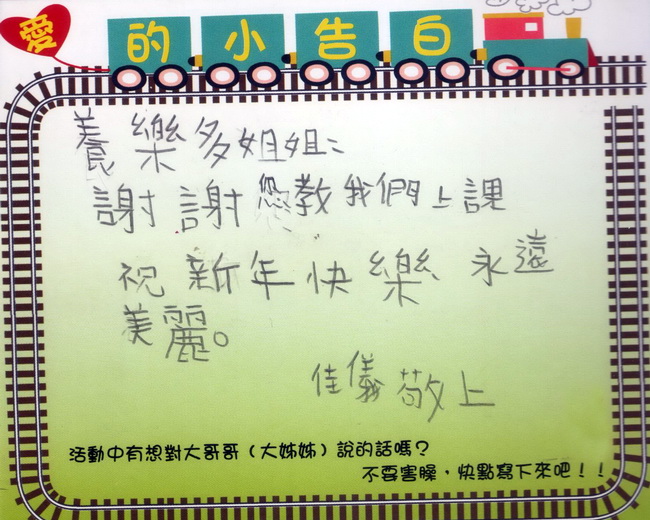 愛的小告白
養樂多姐姐:
謝謝您教我們上課
祝新年快樂 永遠
美麗。
佳儀敬上
活動中有想對大哥哥(大姊姊)說的話嗎?
不要害臊,快點寫下來吧!!